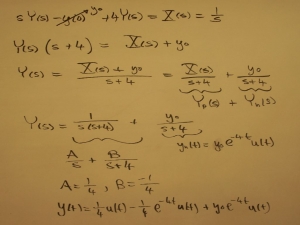 sY(s) - y(0) y₀ + 4Y(s) = X(s) = 1/s
Y(s) (s+4) = X(s) + y₀
Y(s) = (X(s) + y₀)/(s+4) = X(s)/(s+4) + y₀/(s+4)
Yₚ(s) + Yₕ(s)
Y(s) = 1/(s(s+4)) + y₀/(s+4)
yₕ(t) = y₀ e^-4t u(t)
A/s + B/(s+4)
A = 1/4 , B = -1/4
y(t) = 1/4 u(t) - 1/4 e^-4t u(t) + y₀ e^-4t u(t)